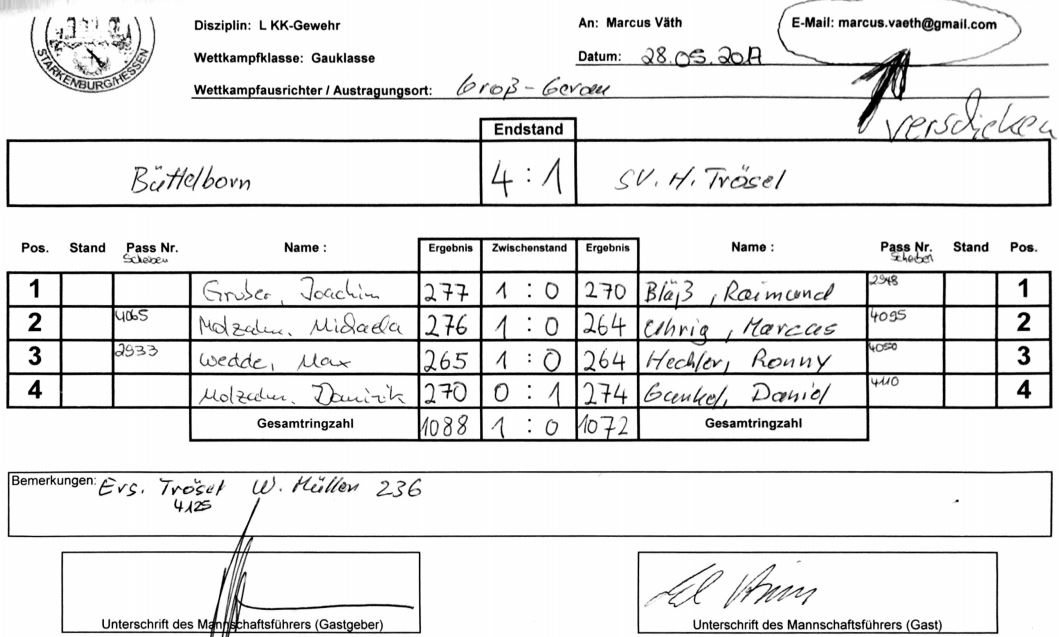 STARKENBURG/HESSEN
Disziplin: L KK-Gewehr
An: Marcus Väth
E-Mail: marcus.vaeth@gmail.com
Wettkampfklasse: Gauklasse
Datum: 28.05.2017
Wettkampfausrichter / Austragungsort: Groß-Gerau
verschicken
Endstand
Büttelborn 4 : 1 SV. H. Trösel
Pos. Stand Pass Nr. Name : Ergebnis Zwischenstand Ergebnis Name : Pass Nr. Stand Pos.
Scheiben Scheiben
1 Gruber, Joachim 277 1 : 0 270 Bläß, Raimund 2948 1
2 4065 Molzahn, Michaela 276 1 : 0 264 Uhrig, Marcus 4095 2
3 2933 Wedde, Max 265 1 : 0 264 Hechler, Ronny 4050 3
4 Molzahn, Dominik 270 0 : 1 274 Gunkel, Daniel 4110 4
Gesamtringzahl 1088 1 : 0 1072 Gesamtringzahl
Bemerkungen: Ers. Trösel W. Müller 236
4125
Unterschrift des Mannschaftsführers (Gastgeber)
Unterschrift des Mannschaftsführers (Gast)